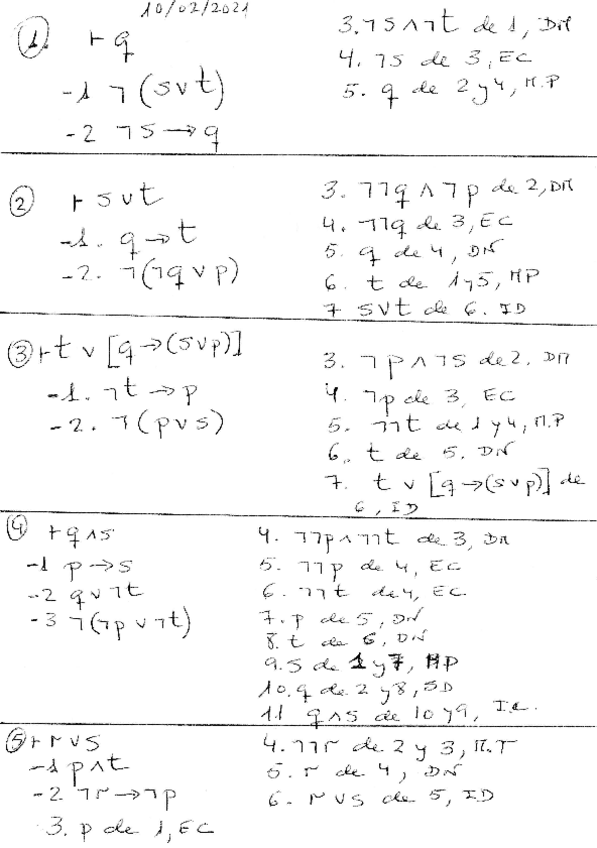 10/02/2021
1. ⊢ q
-1 ¬(s∨t)
-2 ¬s → q
3. ¬s∧¬t de 1, DM
4. ¬s de 3, EC
5. q de 2 y 4, M.P
2 ⊢ s∨t
-1. q → t
-2. ¬(¬q∨p)
3. ¬¬q∧¬p de 2, DM
4. ¬¬q de 3, EC
5. q de 4, DN
6. t de 1 y 5, MP
7 s∨t de 6. ID
3 ⊢ t ∨ [q → (s∨p)]
-1. ¬t → p
-2. ¬(p∨s)
3. ¬p∧¬s de 2. DM
4. ¬p de 3, EC
5. ¬¬t de 1 y 4, M.P
6. t de 5. DN
7. t ∨ [q → (s∨p)] de
6, ID
4 ⊢ q∧s
-1 p → s
-2 q∨¬t
-3 ¬(¬p∨¬t)
4. ¬¬p∧¬¬t de 3, DM
5. ¬¬p de 4, EC
6. ¬¬t de 4, EC
7. p de 5, DN
8. t de 6, DN
9. s de 1 y 7, MP
10. q de 2 y 8, SD
11 q∧s de 10 y 9, I.C.
5 ⊢ r∨s
-1 p∧t
-2 ¬r → ¬p
3. p de 1, EC
4. ¬¬r de 2 y 3, M.T
5. r de 4, DN
6. r∨s de 5, ID